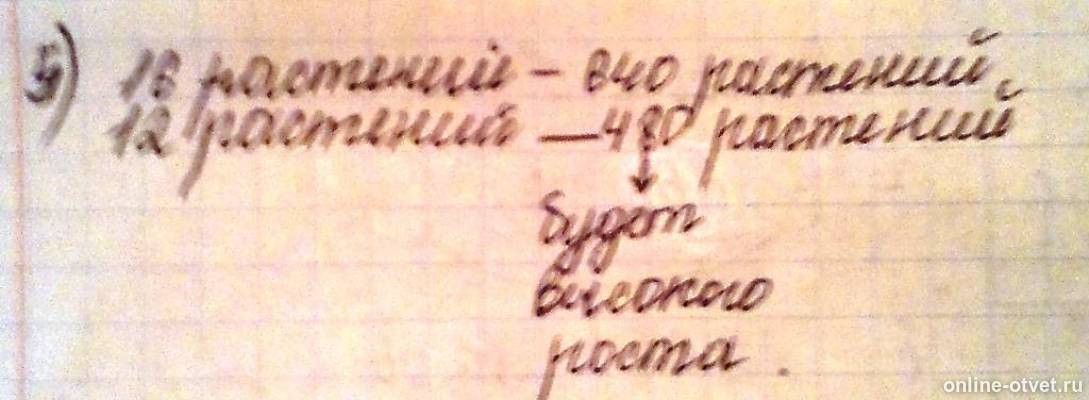 5) 16 растений – 640 растений,
12 растений – 480 растений
будет
высокого
роста.
online-otvet.ru